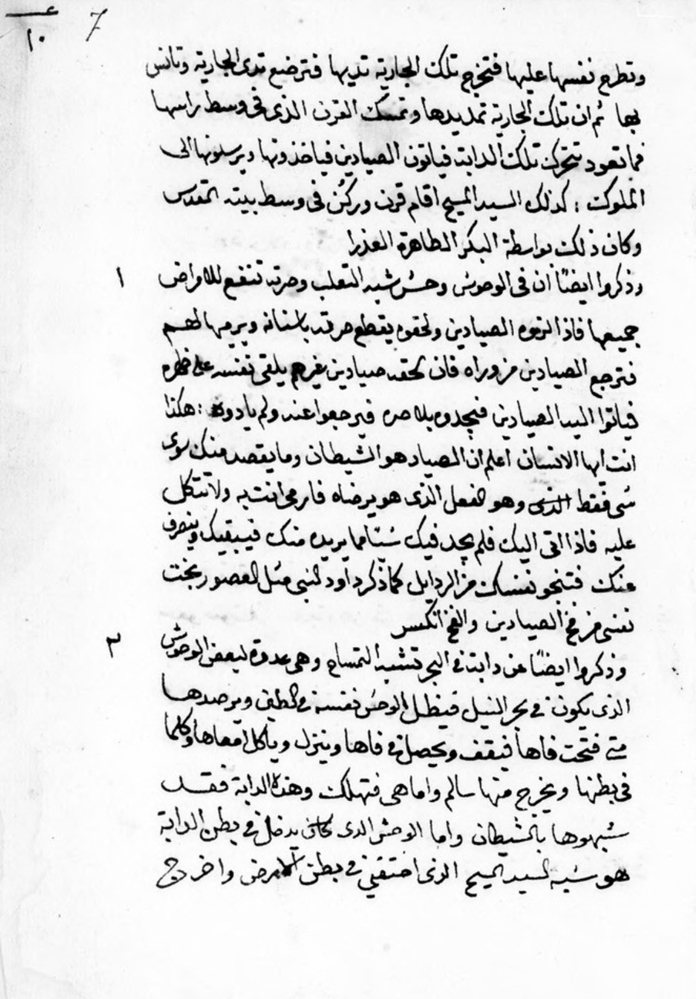 7
ع
١٠
وتطرح نفسها عليها فتخرج تلك الجارية تديها فترضع تدى الجارية وتانس
بها ثم ان تلك الجارية تمد يدها وتمسك القرن الذى فى وسط راسها
فما تعود تتحرك تلك الدابة فياتون الصيادين فياخذونها ويرسلونها الى
الملوك ؛ كذلك السيد المسيح اقام قرن وركن فى وسط بيته المقدس
وكان ذلك بواسطة البكر الطاهرة العذرا
١ وذكروا ايضًا أن فى الوحوش وحش شبه التعلب وصرته تنفع للامراض
جميعها فاذا الصيادين ولحقوه يقطع صرته باسنانه ويرميها لهم
فترجع الصيادين من وراه فان لحقه صيادين غيرهم يلقى نفسه على ظهره
فياتوا اليه الصيادين فيجدوه بلا صره فيرجعوا عنه ولم ياذوه : هكذا
انت ايها الانسان اعلم ان الصياد هو الشيطان وما يقصد منك سوى
شى فقط وهو الفعل الذى هو يرضاه فارمى انت به ولا تتكل
عليه فاذا اتى اليك فلم يجد فيك شيًا مما يريده منك فيبقيك وينصرف
عنك فتنجو نفسك من الردايل كما ذكر داود النبى مثل العصفور نجت
نفسى من فخ الصيادين والفخ انكسر
٢ وذكروا ايضًا عن دابة فى البحر تشبه التمساح وهى عدوة لبعض الوحوش
الذى يكون فى بحر النيل فيظل الوحش نفسه فى الطين ويرصدها
متى فتحت فاها فيقف ويحصل فى فاها وينزل وياكل امعاها وكلما
فى بطنها ويخرج منها سالم واما هى فتهلك وهذه الدابة فقد
شبهوها بالشيطان واما الوحش الذى يدخل فى بطن الدابة
هو شبه السيد المسيح الذى اختفى فى بطن الارض واخرج